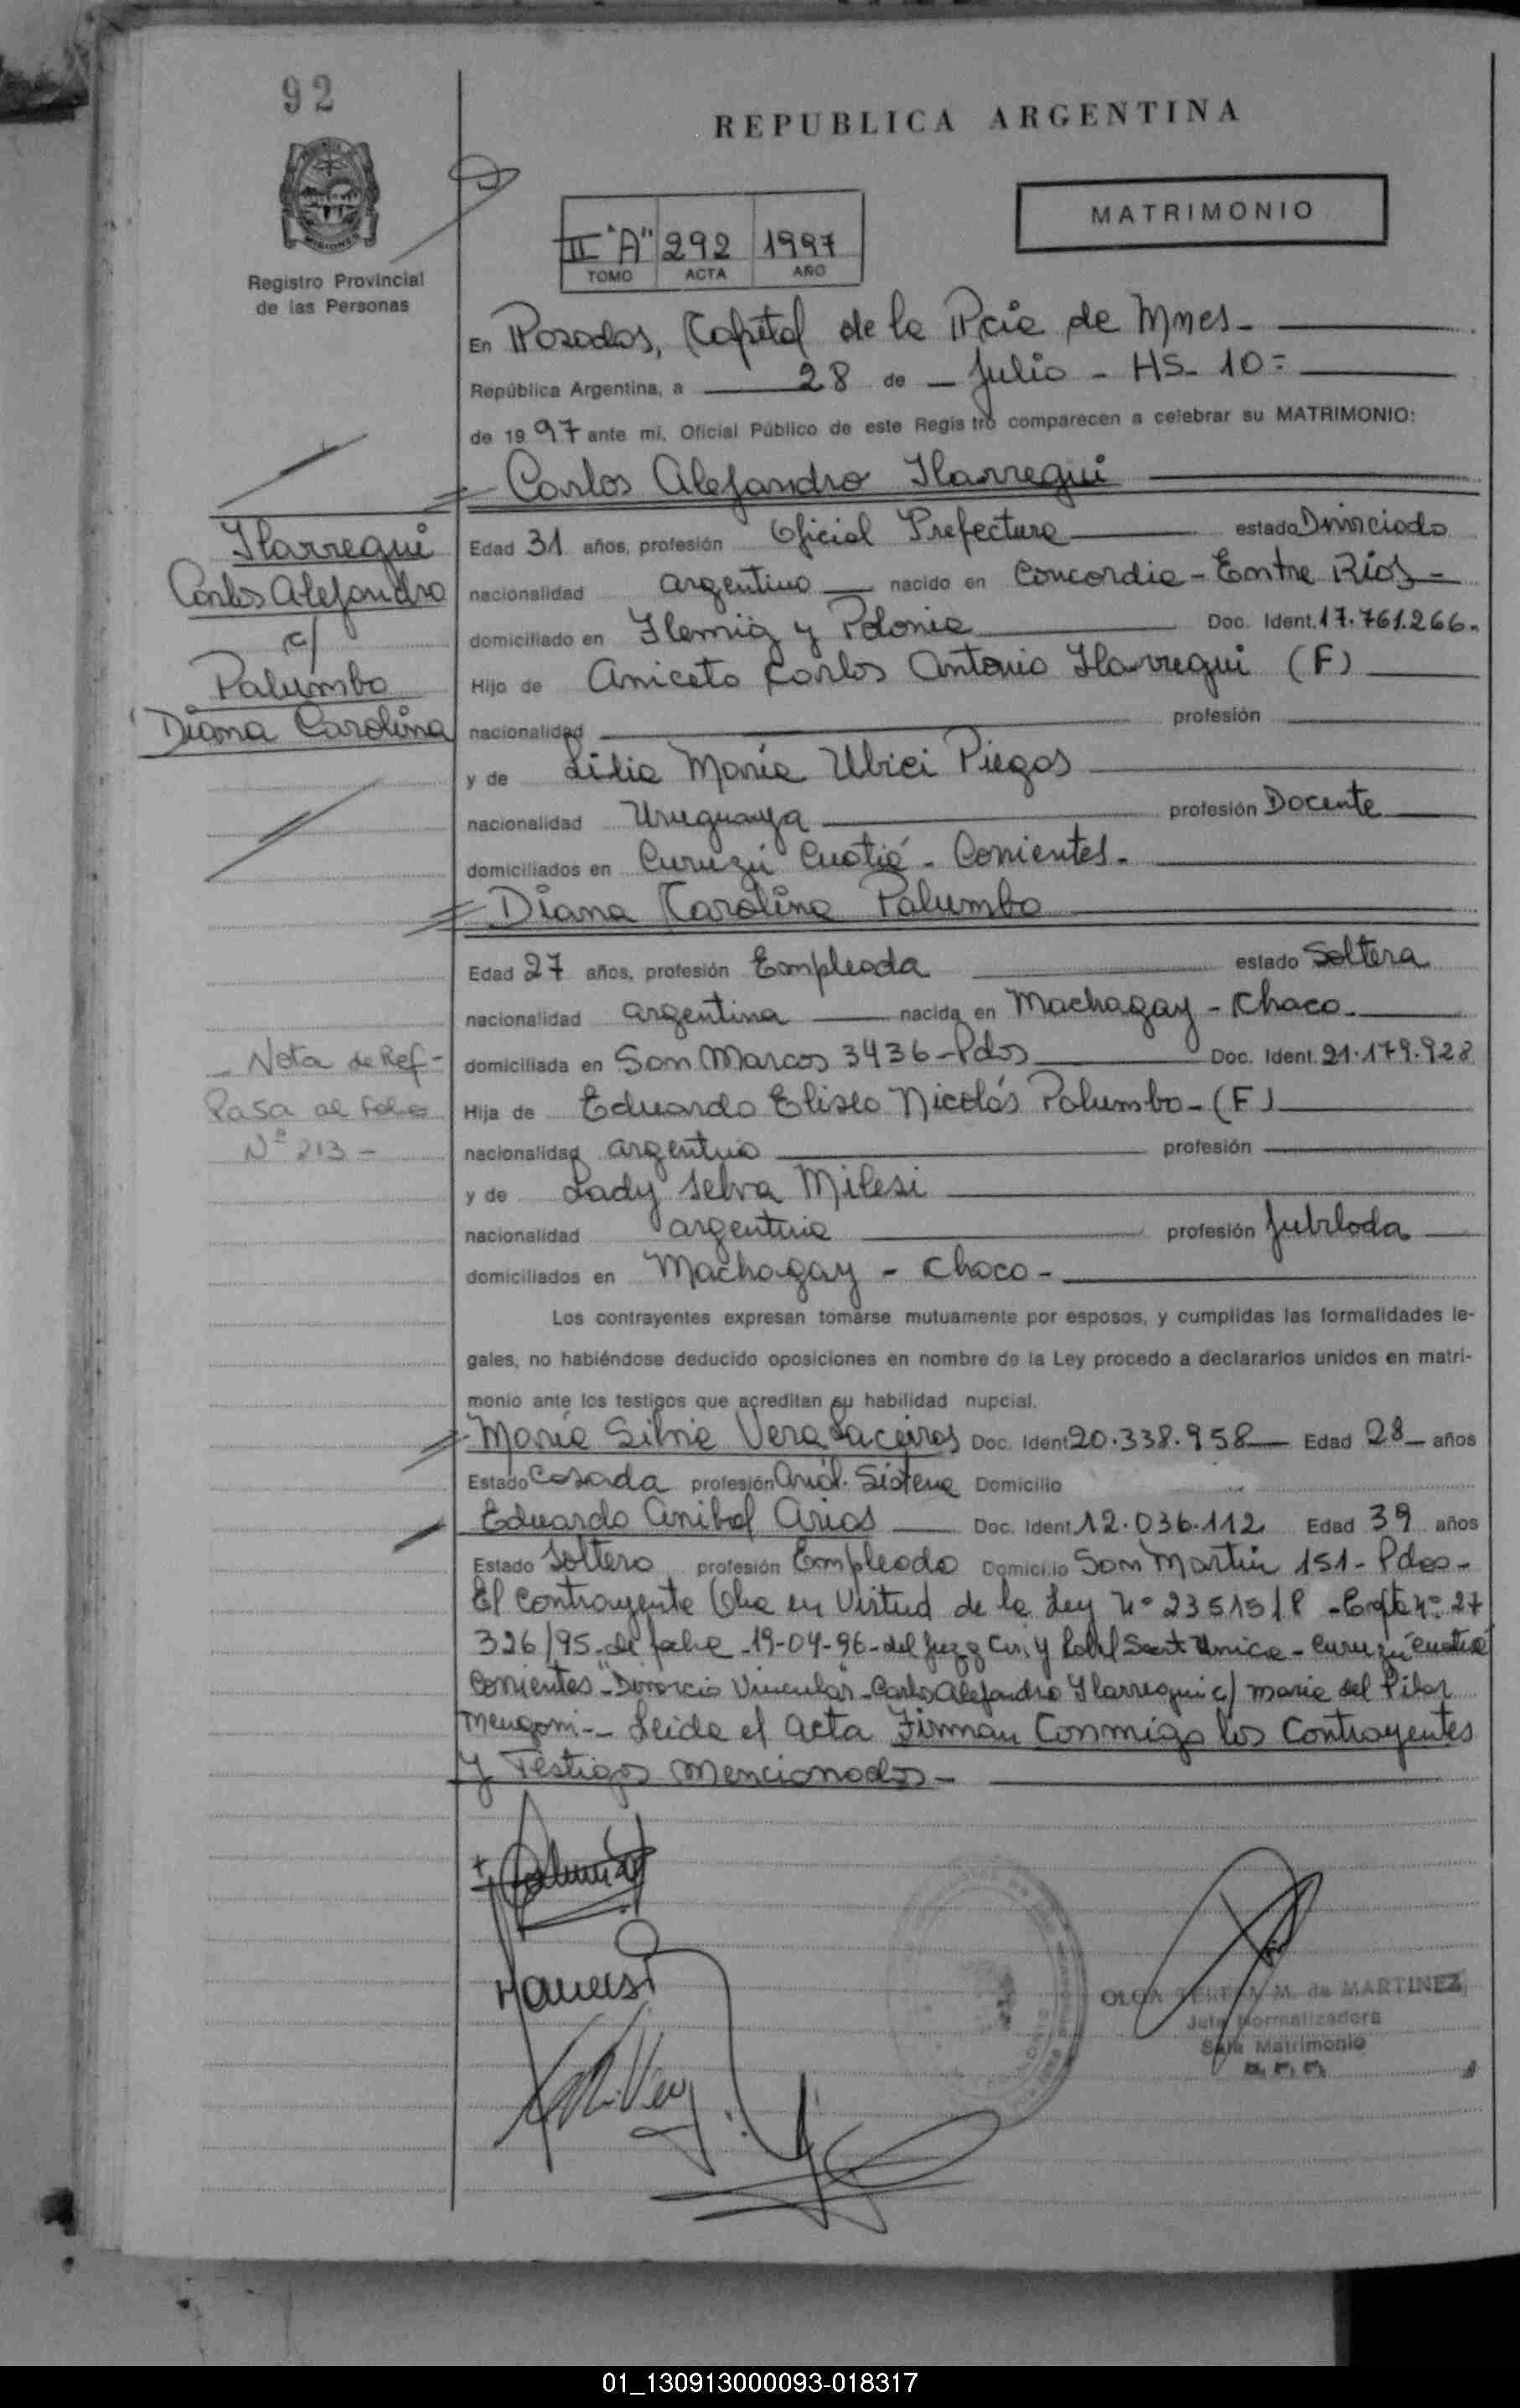 92
REPUBLICA ARGENTINA
MISIONES
Registro Provincial
de las Personas
II "A" 292 1997
TOMO ACTA AÑO
MATRIMONIO
En Posadas, Capital de la Pcia de Mnes-
República Argentina, a 28 de - Julio - HS- 10=
de 1997 ante mi, Oficial Público de este Registro comparecen a celebrar su MATRIMONIO:
Carlos Alejandro Ilarregui
Edad 31 años, profesión Oficial Prefectura estado Divorciado
nacionalidad argentino nacido en Concordia - Entre Ríos -
domiciliado en y Polonia Doc. Ident. 17.761.266.
Hijo de Aniceto Carlos Antonio Ilarregui (F)
nacionalidad profesión
y de Lilia María Ubici Piegas
nacionalidad Uruguaya profesión Docente
domiciliados en Curuzú Cuatiá - Corrientes.
Diana Carolina Palumbo
Edad 27 años, profesión Empleada estado Soltera
nacionalidad argentina nacida en Machagay - Chaco.
domiciliada en San Marcos 3436 - Pdas Doc. Ident. 21.179.928
Hija de Eduardo Eliseo Nicolás Palumbo - (F)
nacionalidad argentino profesión
y de Lady Selva Milesi
nacionalidad argentina profesión Jubilada
domiciliados en Machagay - Chaco -
Los contrayentes expresan tomarse mutuamente por esposos, y cumplidas las formalidades le-
gales, no habiéndose deducido oposiciones en nombre de la Ley procedo a declararlos unidos en matri-
monio ante los testigos que acreditan su habilidad nupcial.
María Silvia Vera Doc. Ident 20.338.958 Edad 28 años
Estado Casada profesión Anál. Sistema Domicilio
Eduardo Anibal Arias Doc. Ident 12.036.112 Edad 39 años
Estado Soltero profesión Empleado Domicilio San Martín 151 - Pdas -
El Contrayente en Virtud de la Ley Nº 23515 - Expte nº 27
326/95 - de fecha - 19-04-96 - del Juzg Civ. y Curuzú Cuatiá
Corrientes - "Divorcio Vincular - Carlos Alejandro Ilarregui c/ María del Pilar
Mengoni -- Leida el Acta Firman Conmigo los Contrayentes
y Testigos mencionados -
Ilarregui
Carlos Alejandro
c/
Palumbo
Diana Carolina
- Nota de Ref -
Pasa al Folio
Nº 213 -
OLGA M. de MARTINEZ
Jefa Normalizadora
Sala Matrimonio
01_130913000093-018317